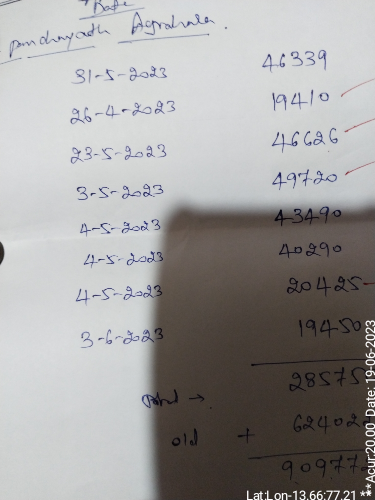 Date
panchayath Agrahara.
31-5-2023 46339
26-4-2023 19410
23-5-2023 46626
3-5-2023 49720
4-5-2023 43490
4-5-2023 40290
4-5-2023 20425
3-6-2023 19450
28575
old + 62402
90977
Lat:Lon-13.66:77.21 ***Acur:20.00 Date: 19-06-2023